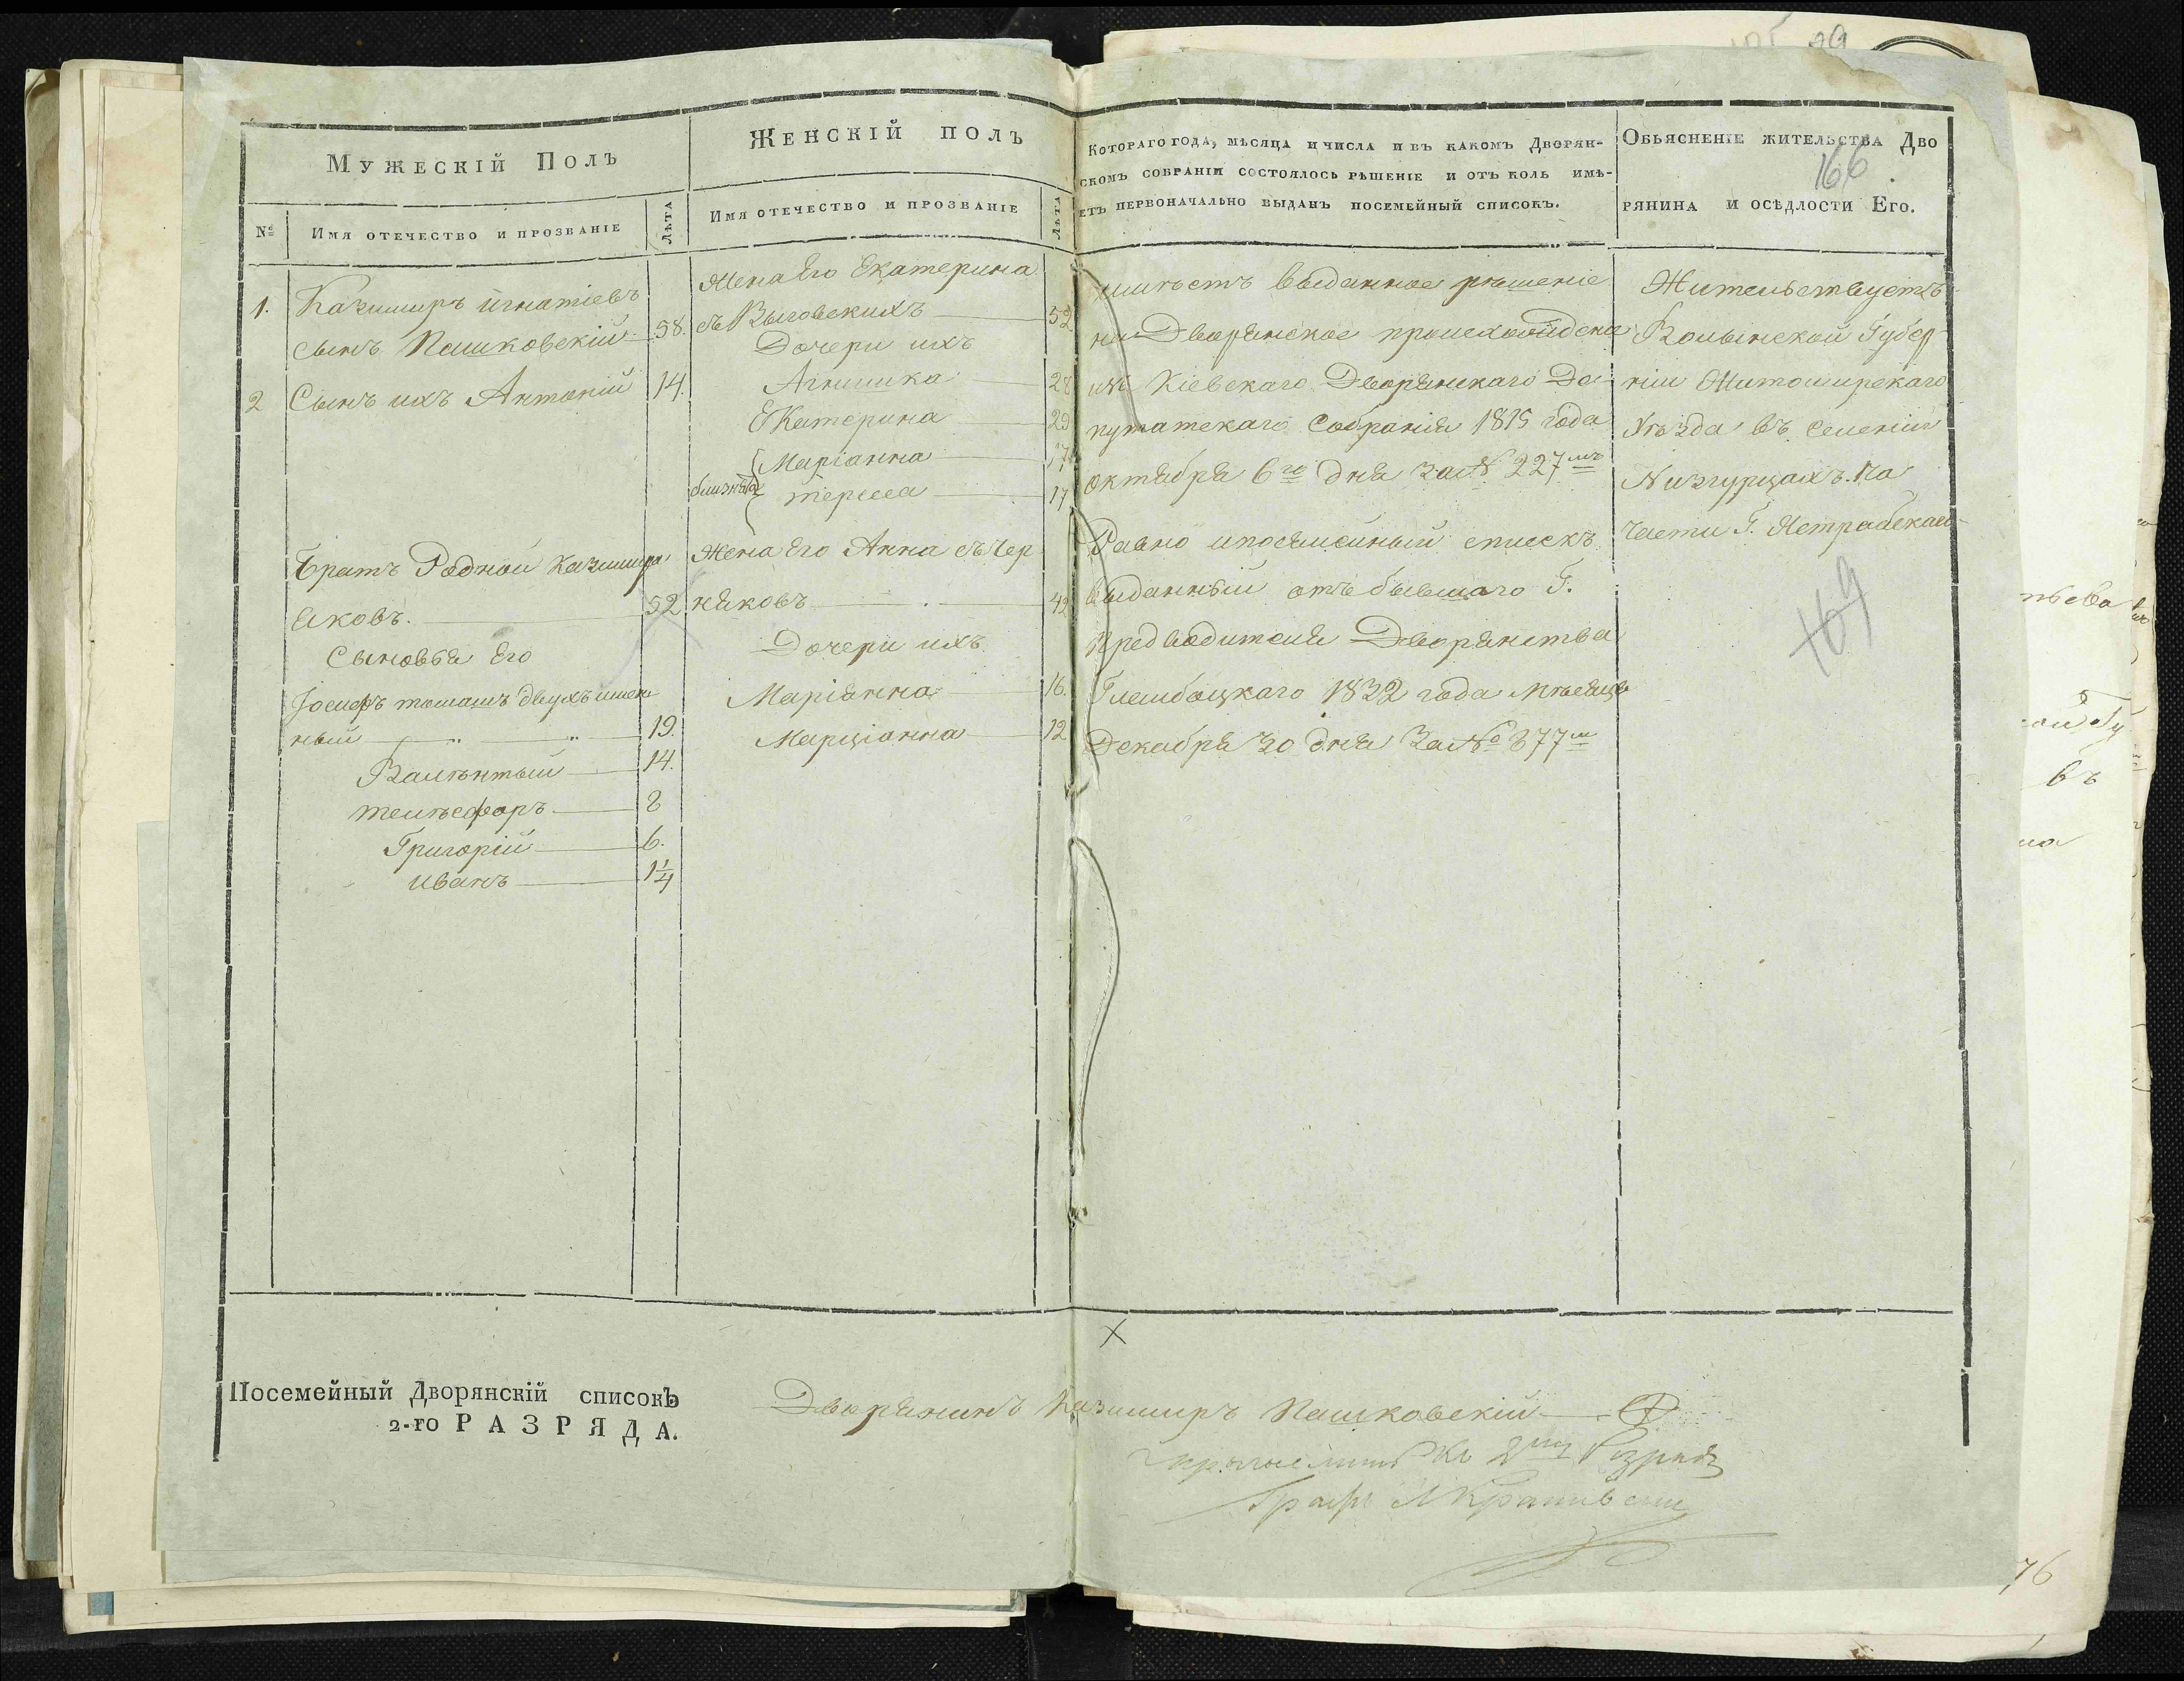 99
166
Мужескій Полъ
№
Имя отечество и прозваніе
Лѣта
1. Казимиръ игнатіевъ
сынъ Пашковскій 58.
2 Сынъ ихъ Антоній 14.
Братъ Родной Казимира
Яковъ. 52
Сыновья Его
Іосифъ томашъ двухъимен
ный 19.
Валѣнтый 14.
телѣсфоръ 8
Григорій 6.
иванъ 1 1/4
Женскій полъ
Имя отечество и прозваніе
Лѣта
Жена Его Екатерина
съ Выговскихъ 52
Дочери ихъ
Агнишка 28
Екатерина 23
Маріанна 17
близнята тересса 17
Жена Его Анна съ Чер
няковъ 42
Дочери ихъ
Маріянна 16.
Марціанна 12
Котораго года, мѣсяца и числа и въ какомъ Дворян-
скомъ собраніи состоялось рѣшеніе и отъ коль имѣ-
етъ первоначально выданъ посемейный списокъ.
имѣетъ выданное рѣшеніе
на Дворянское происхожденіе
изъ Кіевскаго Дворянскаго Де
путатскаго Собранія 1815 года
октября 6го дня за № 227мъ
Равно ипосемейный списокъ
выданный отъ бывшаго Г.
Предводителя Дворянства
Глембоцкаго 1832 года Мѣсяца
Декабря 30 дня За № 877м
Обьясненіе жительства Дво
рянина и осѣдлости Его.
Жительствуетъ
Волынской Губер
ніи Житомирскаго
Уѣзда въ селеніи
Низгурцахъ. На
части Г. Ястрабскаго
169
Посемейный Дворянскій списокъ
2-го РАЗРЯДА.
Дворянинъ Казимиръ Пашковскій
къ 2му Розряду
Графъ
въ
76